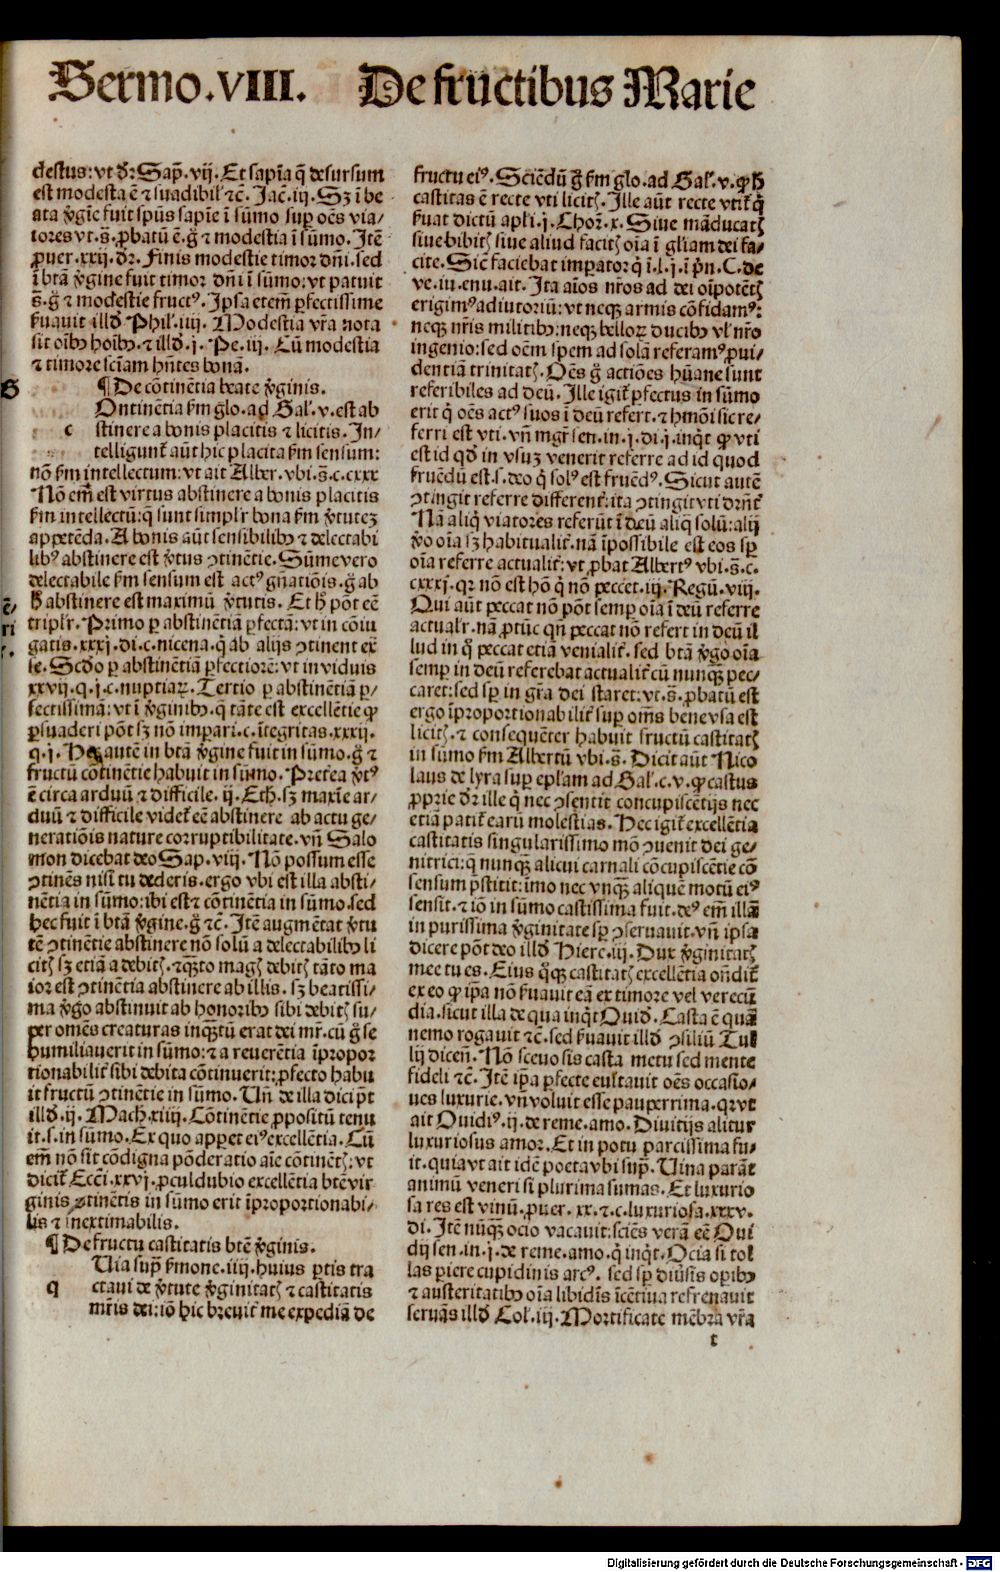 Sermo.VIII. De fructibus Marie
destus: vt dr̄ Sap̄.vij. Et sapīa q̄ desursum
est modesta ē ⁊ suadibil' ⁊c̄. Jac̄.iij. Sꝫ ī be
ata v̄gīe fuit spūs sapīe ī sūmo sup̄ oēs via/
tores vt.s̄. ꝓbatū ē. g̊ ⁊ modestia ī sūmo. Itē
ꝓuer.xxij. dr̄. Finis modestie timor dn̄i. sed
ī btā v̄gine fuit timor dn̄i ī sūmo: vt patuit
s̄. g̊ ⁊ modestie fructꝰ. Ip̄sa etem̄ ꝑfectissime
ẜuauit illd̄ Phil'.iiij. Modestia vr̄a nota
sit oībꝫ hoībꝫ. ⁊ illd̄.j. Pe.iij. Cū modestia
⁊ timore sc̄iam hn̄tes bonā.
G
¶ De cōtinētia beate v̄ginis.
c
Ontinētia ẜm glo. ad Gal'.v. est ab
stinere a bonis placitis ⁊ licitis. In/
telligunt̄ aūt hic placita ẜm sensum:
nō ẜm intellectum: vt ait Alber. vbi.s̄.c.cxxx
Nō em̄ est virtus abstinere a bonis placitis
ẜm intellectū: q̄ sunt simpl'r bona ẜm v̄tuteꝫ
appetēda. A bonis aūt sensibilibꝫ ⁊ delectabi
libꝰ abstinere est v̄tus ꝯtinētie. Sūme vero
delectabile ẜm sensum est actꝰ gn̄atiōis. g̊ ab
h̄ abstinere est maximū v̄tutis. Et h̄ pōt eē
tripl'r. Primo ꝑ abstinētiā ꝑfectā: vt in cōiu
gatis.xxxj. di.c. nicena. q̄ ab alijs ꝯtinent ex̄
le. Scd̄o ꝑ abstinētiā ꝑfectiorē: vt in viduis
xxvij.q.j.c. nuptiaꝝ. Tertio ꝑ abstinētiā ꝑ/
fectissimā: vt ī v̄ginibꝫ. q̄ tāte est excellētie ꝙ
ꝑsuaderi pōt sꝫ nō impari. c. ītegritas.xxxij.
q.j. Hec autē in btā v̄gine fuit in sūmo. g̊ ⁊
fructū cōtinētie habuit in sūmo. Pretea v̄tꝰ
ē circa arduū ⁊ difficile. ij. Eth̄. sꝫ maxīe ar/
duū ⁊ difficile videt̄ eē abstinere ab actu ge/
neratiōis nature corruptibilitate. vn̄ Salo
mon dicebat deo Sap.viij. Nō possum esse
ꝯtinēs nisi tu dederis. ergo vbi est illa absti/
nētia in sūmo: ibi est ⁊ cōtinētia in sūmo. sed
hec fuit ī btā v̄gine. g̊ ⁊c̄. Itē augmētat v̄tu
tē ꝯtinētie abstinere nō solū a delectabilibꝫ li
citꝭ sꝫ etiā a debitꝭ. ⁊ qꝫto magꝭ debitꝭ tāto ma
ior est ꝯtinētia abstinere ab illis. sꝫ beatissi/
ma v̄go abstinuit ab honoribꝫ sibi debitꝭ su/
per omēs creaturas inqꝫtū erat dei mr̄. cū g̊ se
humiliauerit in sūmo: ⁊ a reuerētia īpropor
tionabilit̄ sibi debita cōtinuerit: ꝓfecto habu
it fructū ꝯtinētie in sūmo. Un̄ de illa dici pōt
illd̄.ij. Mach.xiiij. Cōtinētie ꝓpositū tenu
it.s. in sūmo. Ex quo appet eiꝰ excellētia. Cū
em̄ nō sit cōdigna pōderatio aīe cōtinētꝭ: vt
dicit̄ Ecci.xxvj. ꝓculdubio excellētia btē vir
ginis ꝯtinētis in sūmo erit īproportionabi/
lis ⁊ inextimabilis.
¶ De fructu castitatis btē v̄ginis.
q
Uia sup̄ ẜmone.iiij. huius ꝑtis tra
ctaui de v̄tute v̄ginitatꝭ ⁊ castitatis
mr̄is dei: iō hic breuit̄ me expediā de
fructu eiꝰ. Sciēdū g̊ ẜm glo. ad Gal'.v. ꝙ h̄
castitas ē recte vti licitꝭ. Ille aūt recte vtit̄ q̄
ẜuat dictū apl'i.j. Chor̄.x. Siue māducatꝭ
siue bibitꝭ siue aliud facitꝭ oīa ī gl'iam dei fa/
cite. Sic̄ faciebat imꝑator q̄ ī.l.j. ī pn̄.C. de
ve.iu.enu. ait. Ita aīos nr̄os ad dei oīpotētꝭ
erigimꝰ adiutoriū: vt neqꝫ armis cōfidamꝰ:
neqꝫ nr̄is militibꝫ: neqꝫ belloꝝ ducibꝫ vl' nr̄o
ingenio: sed oēm spem ad solā referamꝰ ꝓui/
dentiā trinitatꝭ. Oēs g̊ actiōes hūane sunt
referibiles ad deū. Ille igit̄ ꝑfectus in sūmo
erit q̄ oēs actꝰ suos ī deū refert. ⁊ hmōi sic re/
ferri est vti. vn̄ mgr̄ sen. in.j.di.j. inq̄t ꝙ vti
est id qd̄ in vsuꝫ venerit referre ad id quod
fruēdū est.s. deo q̄ solꝰ est fruēdꝰ. Sicut autē
ꝯtingit referre different̄: ita ꝯtingit vti drn̄t̄
Nā aliq̄ viatores referūt ī deū aliq̄ solū: alij
v̄o oīa sꝫ habitualit̄. nā īpossibile est eos sꝑ
oīa referre actualit̄: vt ꝓbat Albertꝰ vbi.s̄.c.
cxxxj. qr nō est hō q̄ nō peccet. iij. Regū.viij.
Qui aūt peccat nō pōt semꝑ oīa ī deū referre
actual'r. nā ꝓtūc qn̄ peccat nō refert in deū il
lud in q̊ peccat etiā venialit̄. sed btā v̄go oīa
semꝑ in deū referebat actualit̄ cū nunqꝫ pec/
caret: sed sꝑ in gr̄a dei staret: vt.s̄. ꝓbatū est
ergo īproportionabilit̄ suꝑ om̄s bene vsa est
licitꝭ. ⁊ consequēter habuit fructū castitatꝭ
in sūmo ẜm Albertū vbi.s̄. Dicit aūt Nico
laus de lyra suꝑ epl'am ad Gal'.c.v. ꝙ castus
ꝓprie dr̄ ille q̄ nec ꝯsentit concupiscētijs nec
etiā patit̄ earū molestias. Hec igit̄ excellētia
castitatis singularissimo mō ꝯuenit dei ge/
nitrici: q̄ nunqꝫ alicui carnali cōcupiscētie cō
sensum p̄stitit: īmo nec vnqꝫ aliquē motū eiꝰ
sensit. ⁊ iō in sūmo castissima fuit. deꝰ em̄ illā
in purissima v̄ginitate sꝑ ꝯseruauit. vn̄ ip̄sa
dicere pōt deo illd̄ Hiere.iij. Dux v̄ginitatꝭ
mee tu es. Eius q̊qꝫ castitatꝭ excellētia on̄dit̄
ex eo ꝙ ip̄a nō ẜuauit eā ex timore vel verecū
dia. sicut illa de qua inq̄t Ouid̄. Casta ē quā
nemo rogauit ⁊c̄. sed ẜuauit illd̄ ꝯsiliū Tul
lij dicen̄. Nō sceuo sis casta metu sed mente
fideli ⁊c̄. Itē ip̄a ꝑfecte euitauit oēs occasiō/
nes luxurie. vn̄ voluit esse pauꝑrima. qr vt
ait Ouidiꝰ.ij. de reme. amo. Diuitijs alitur
luxuriosus amor. Et in potu parcissima fu/
it. quia vt ait idē poeta vbi sup̄. Uina parāt
animū veneri si plurima sumas. Et luxurio
sa res est vinū. ꝓuer.xx. ⁊.c. luxuriosa.xxxv.
di. Itē nūqꝫ ocio vacauit: sciēs verā eē Oui
dij sen. in.j. de reme. amo. q̄ inq̄t. Ocia si tol
las periere cupidinis arcꝰ. sed sꝑ diūsis oꝑibꝫ
⁊ austeritatibꝫ oīa libidīs īcētiua refrenauit
seruās illd̄ Col'.iij. Mortificate mēbra vr̄a
t
Digitalisierung gefördert durch die Deutsche Forschungsgemeinschaft - DFG